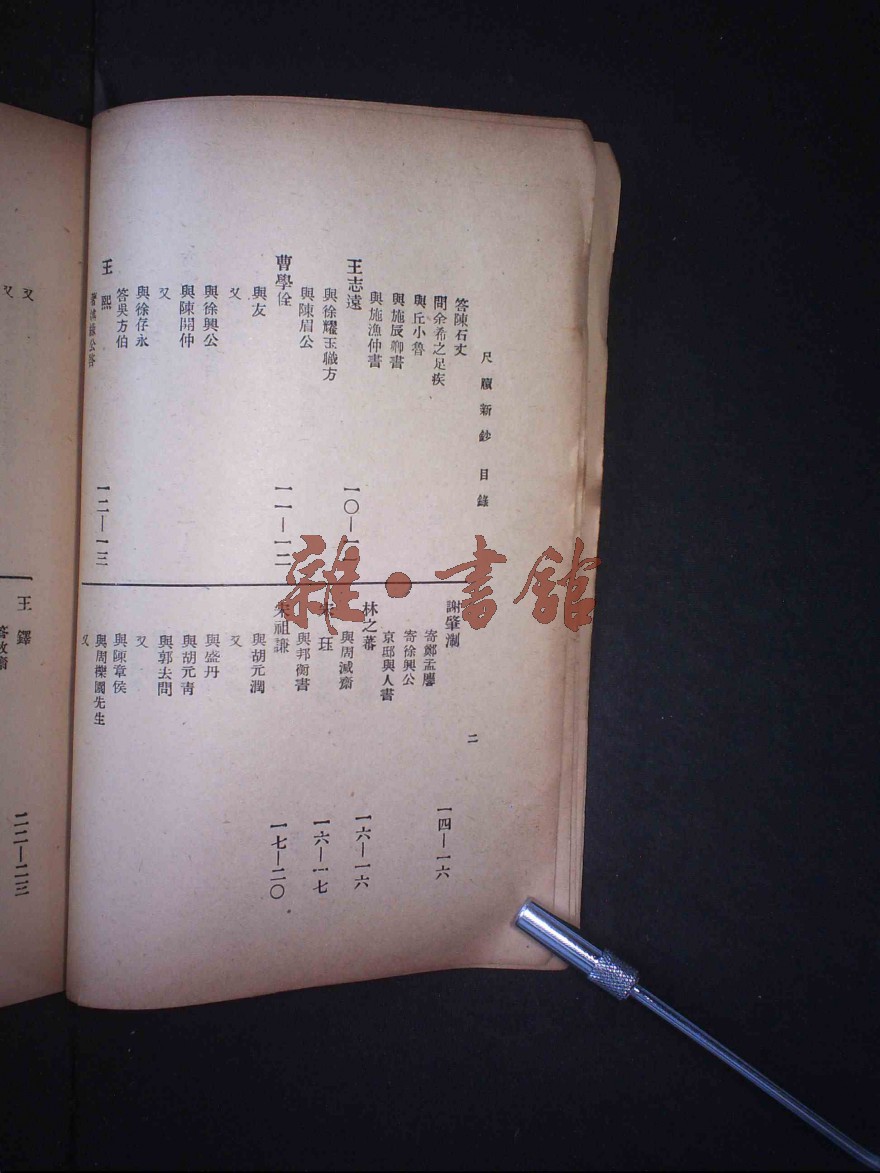 尺牘新鈔 目錄
二
答陳石丈
問余希之足疾
與丘小魯
與施辰卿書
與施漁仲書
王志遠 一〇—一一
與徐耀玉職方
與陳眉公
曹學佺 一一—一二
與友
又
與徐興公
與陳開仲
又
與徐存永
答吳方伯
王熙 一二—一三
謝肇淛 一四—一六
寄鄭孟麐
寄徐興公
京邸與人書
林之蕃 一六—一六
與周減齋
朱玨 一六—一七
與邦衡書
朱祖謙 一七—二〇
與胡元潤
又
與盛丹
與胡元青
與郭去問
又
與陳章侯
與周櫟園先生
又
又
又
王鐸 二二—二三
雜·書館